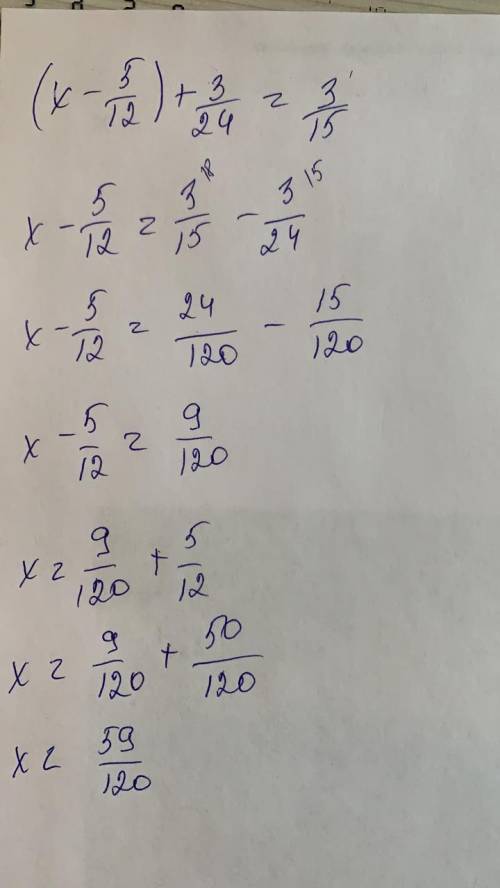 (x - 5/12) + 3/24 = 3/15
x - 5/12 = 3/15 - 3/24
x - 5/12 = 24/120 - 15/120
x - 5/12 = 9/120
x = 9/120 + 5/12
x = 9/120 + 50/120
x = 59/120